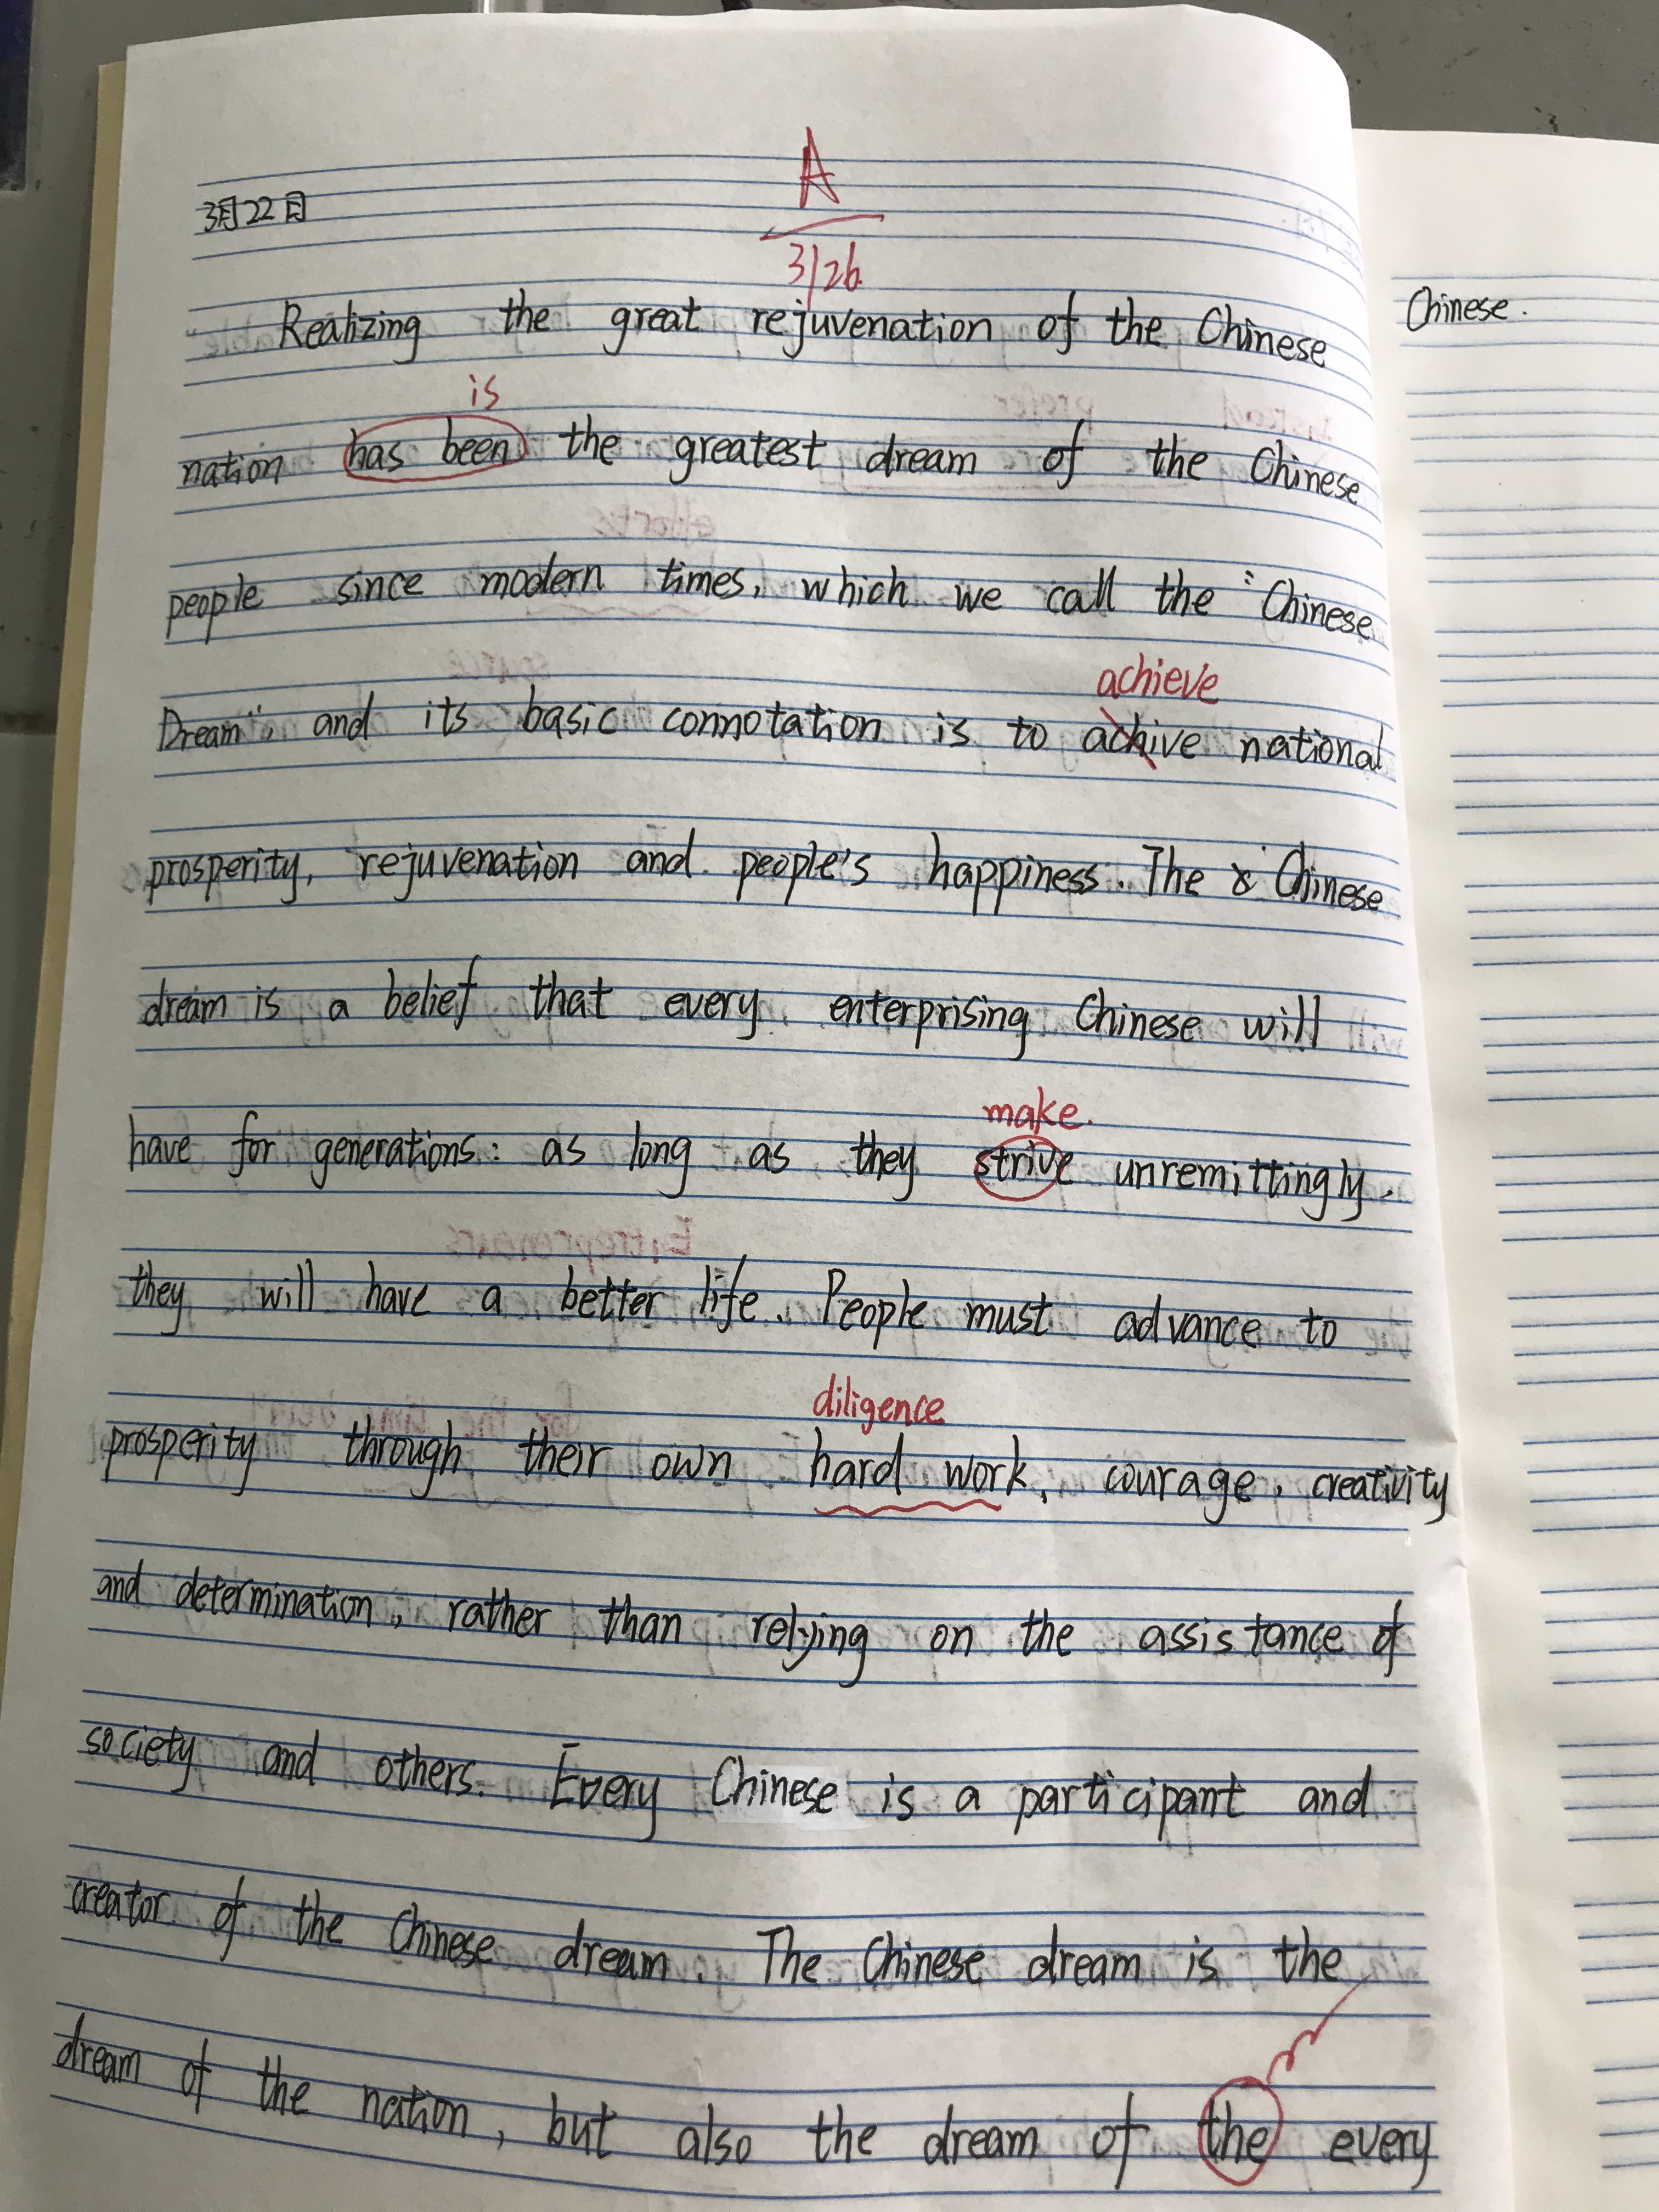 A
3月22日
3/26
Realizing the great rejuvenation of the Chinese
is
nation has been the greatest dream of the Chinese
people since modern times, which we call the "Chinese
achieve
Dream", and its basic connotation is to achive national
prosperity, rejuvenation and people's happiness. The Chinese
dream is a belief that every enterprising Chinese will
make.
have for generations: as long as they strive unremittingly.
they will have a better life. People must advance to
diligence
prosperity through their own hard work, courage, creativity
and determination, rather than relying on the assistance of
society and others. Every Chinese is a participant and
creator of the Chinese dream. The Chinese dream is the
dream of the nation, but also the dream of the every
Chinese.